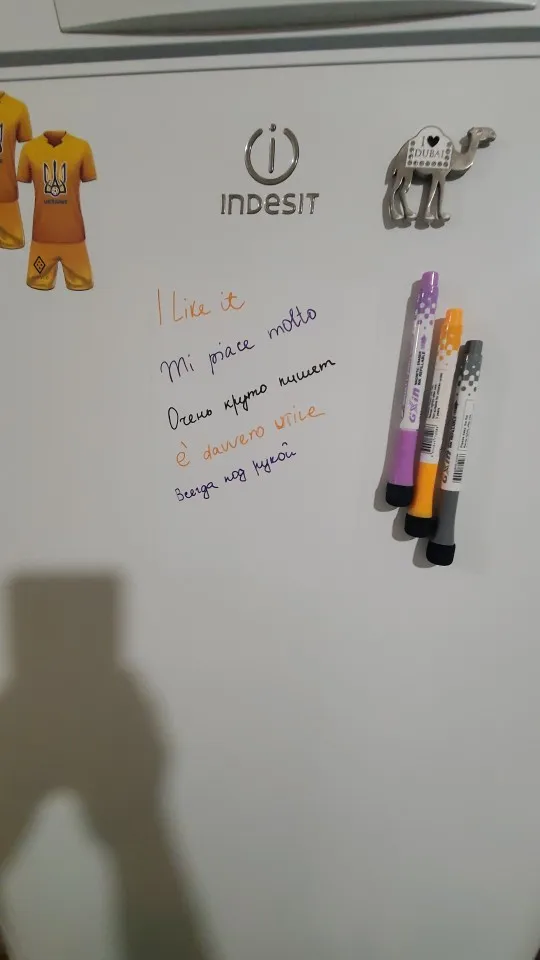 INDESIT
I ♥
DUBAI
I Like it
Mi piace molto
Очень круто пишет
è davvero utile
Всегда под рукой
GXIN
GXIN